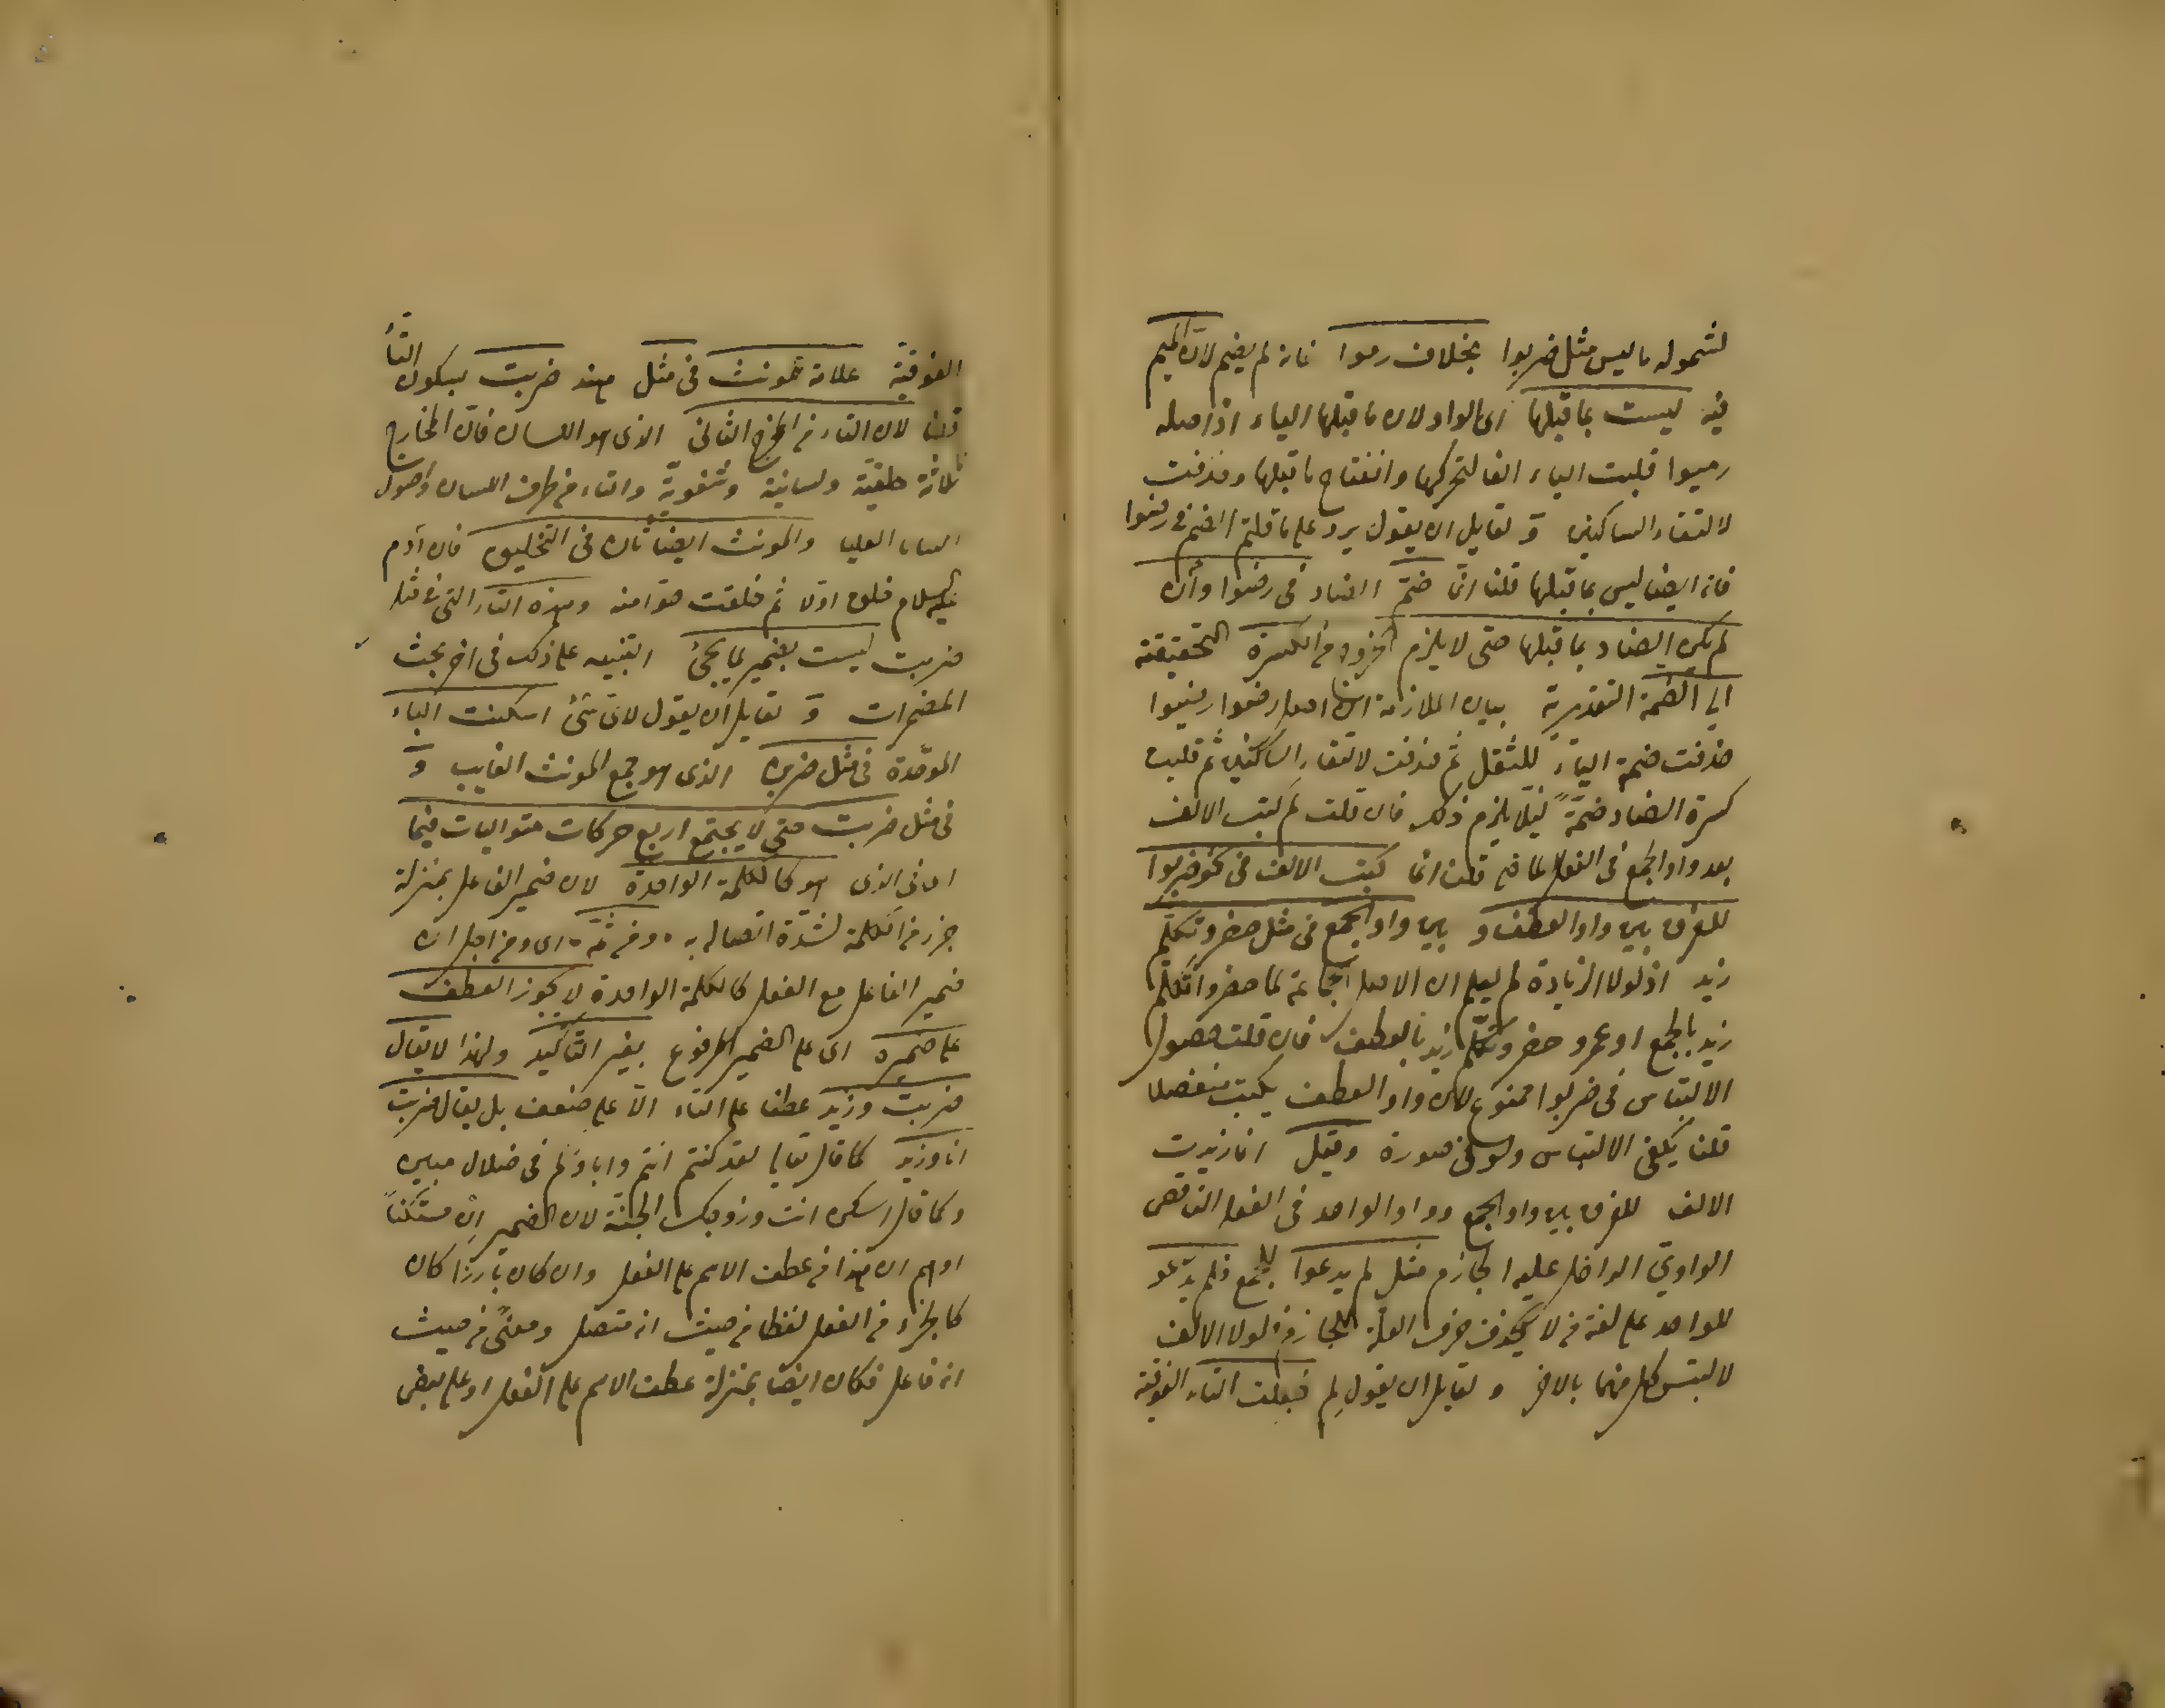 لشموله ما ليس مثل ضربوا بخلاف رموا فانه لم يضم لان الميم
فيه ليست بما قبلها اى الواو لان ما قبلها الياء اذ اصله
رميوا قلبت الياء الفا لتحركها وانفتاح ما قبلها وحذفت
لالتقاء الساكنين و لقايل ان يقول يرد على ما قلتم الضم فى رضوا
فانه ايضا ليس بما قبلها قلنا انما ضم الضاد فى رضوا وان
لم يكن الضاد بما قبلها حتى لا يلزم الخروج من الكسرة التحقيقية
الى الضمة التقديرية بيان الملازمة ان اصل رضوا رضيوا
حذفت ضمة الياء للثقل ثم حذفت لالتقاء الساكنين ثم قلبت
كسرة الضاد ضمة ليلا يلزم ذلك فان قلت لم كتب الالف
بعد واو الجمع فى الفعل الماضى قلت انما كتبت الالف فى نحو ضربوا
للفرق بين واو العطف و بين واو الجمع فى مثل حضر وتكلم
زيد اذ لولا الزيادة لم يعلم ان الاصل الجماعة لما حضروا تكلم
زيد بالجمع او عمرو حضر وتكلم زيد بالعطف فان قلت حصول
الالتباس فى ضربوا ممنوع لان واو العطف يكتب منفصلا
قلنا يكفى الالتباس ولو فى صورة وقيل انما زيدت
الالف للفرق بين واو الجمع وواو الواحد فى الفعل الناقص
الواوى الداخل عليه الجازم مثل لم يدعوا للجمع ولم يدعو
للواحد على لغة من لا يحذف حرف العلة للجازم ولولا الالف
لالتبس كل منهما بالاخر و لقايل ان يقول لم جعلت التاء الفوقية
الفوقية علامة للمونث فى مثل هند ضربت بسكون التاء
قلنا لان التاء من المخرج الثانى الذى هو اللسان فان المخارج
ثلاثة حلقية ولسانية وشفوية والتاء من طرف اللسان واصول
الثنايا العليا والمونث ايضا ثان فى التخليق فان آدم
عليه السلام خلق اولا ثم خلقت حوا منه وهذه التاء التى فى مثل
ضربت ليست بضمير لما يجئ التنبيه على ذلك فى اخر بحث
المضمرات و لقايل ان يقول لاى شئ اسكنت الباء
الموحدة فى مثل ضربن الذى هو جمع المونث الغايب و
فى مثل ضربت حتى لا يجتمع اربع حركات متواليات فيما
اى فى الذى هو كالكلمة الواحدة لان ضمير الفاعل بمنزلة
جزء من الكلمة لشدة اتصاله به ومن ثمه اى ومن اجل ان
ضمير الفاعل مع الفعل كالكلمة الواحدة لا يجوز العطف
على ضميره اى على الضمير المرفوع بغير التاكيد ولهذا لا يقال
ضربت وزيد عطفا على التاء الا على ضعف بل يقال ضربت
انا وزيد كما قال تعالى لقد كنتم انتم واباؤكم فى ضلال مبين
وكما قال اسكن انت وزوجك الجنة لان الضمير ان مستكنا
اوهم ان هذا من عطف الاسم على الفعل وان كان بارزا كان
كالجزء من الفعل لفظا من حيث انه متصل ومعنى من حيث
انه فاعل فكان ايضا بمنزلة عطف الاسم على الفعل او على بعض